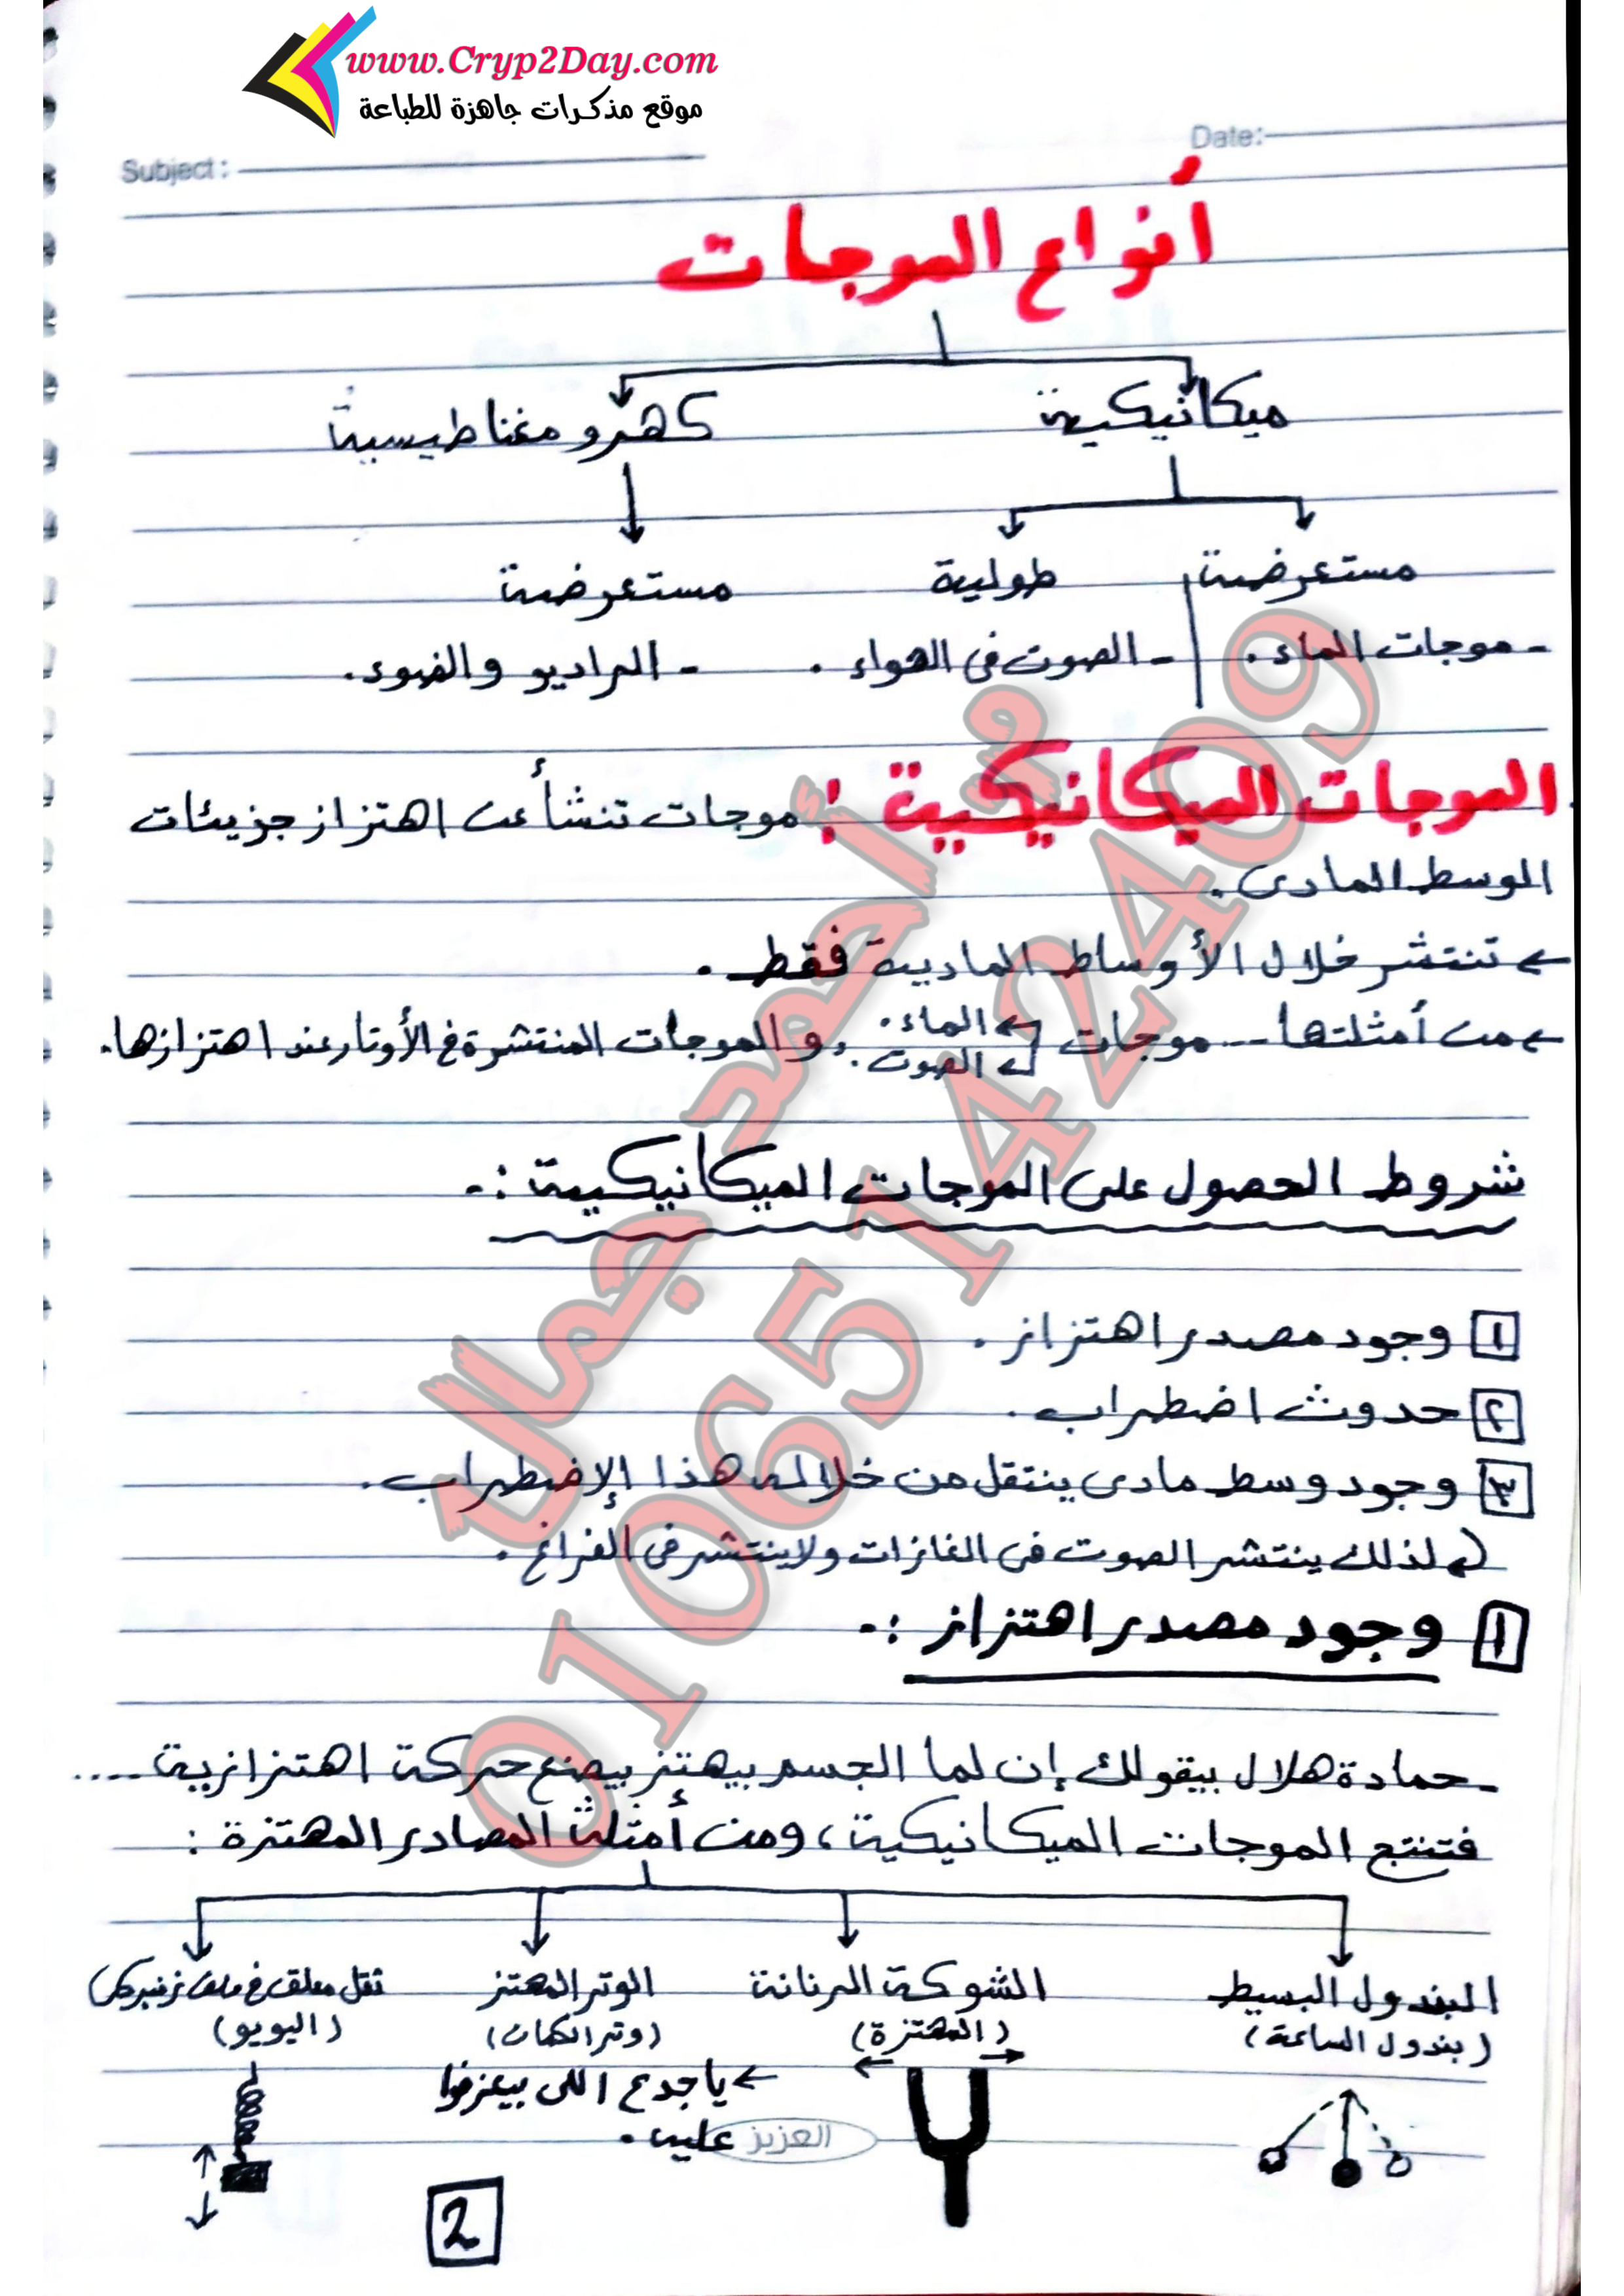 www.Cryp2Day.com
موقع مذكرات جاهزة للطباعة
Subject:
Date:
أنواع الموجات
ميكانيكية
كهرومغناطيسية
مستعرضة
طولية
مستعرضة
- موجات الماء.
- الصوت فى الهواء.
- الراديو والضوء.
الموجات الميكانيكية: موجات تنشأ عن اهتزاز جزيئات
الوسط المادى.
← تنتشر خلال الأوساط المادية فقط.
← من أمثلتها -- موجات ← الماء. ← الصوت. و الموجات المنتشرة فى الأوتار عند اهتزازها.
شروط الحصول على الموجات الميكانيكية :-
١ وجود مصدر اهتزاز.
٢ حدوث اضطراب.
٣ وجود وسط مادى ينتقل من خلاله هذا الإضطراب.
← لذلك ينتشر الصوت فى الغازات ولا ينتشر فى الفراغ.
١ وجود مصدر اهتزاز :-
- حمادة هلال بيقولك إن لما الجسم بيهتز بيصنع حركة اهتزازية ....
فتنتج الموجات الميكانيكية، ومن أمثلة المصادر المهتزة :
البندول البسيط
(بندول الساعة)
الشوكة الرنانة
(المهتزة)
الوتر المهتز
(وتر الكمان)
ثقل معلق فى ملف زنبركى
(اليويو)
← يا جدع اللى بيعزفوا
عليه.
العزيز
2
م/ أحمد جمال
01065142409